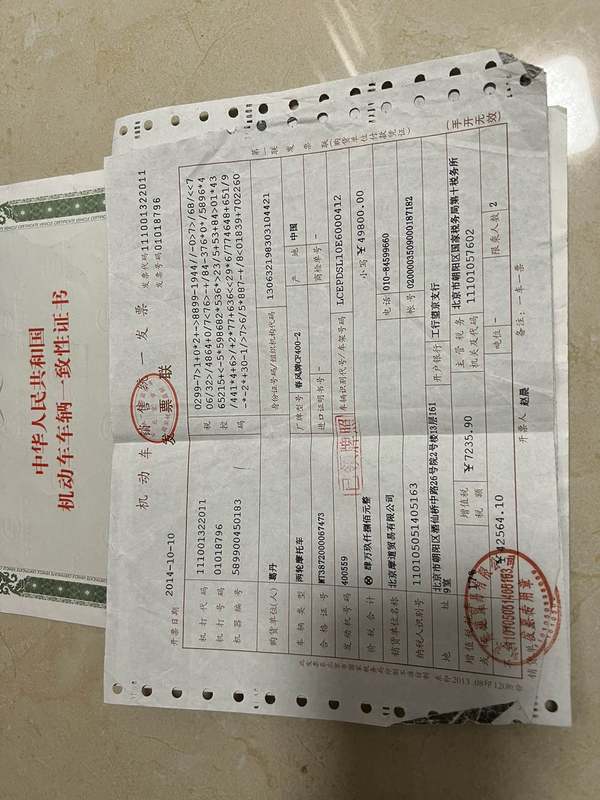 中华人民共和国
机动车车辆一致性证书
机动车销售统一发票
发票联
发票代码 111001322011
发票号码 01018796
开票日期 2014-10-10
机打代码 111001322011
机打号码 01018796
机器编号 589900450183
税控码
0299-7>1+0*2+->8899-1944//-0>7>/68/<<7
06/32>/4864+0/7<76>-+/84-376*0+/5896*4
65215+<-5*598682*536*>23/5+53+84>01*43
/441*4+6>/+2*77+636<<29*6/774648+651/9
-*-2*+30-1/>7>6/5*887-+/8<01839+702260
购货单位(人) 葛丹 身份证号码/组织机构代码 130632198303104421
车辆类型 两轮摩托车 厂牌型号 春风牌CF400-2 产地 中国
合格证号 WT3872000067473 进口证明书号 - 商检单号 -
发动机号码 400559 车辆识别代号/车架号码 LCEPDSL10E6000412
已领牌照
价税合计 ⊗ 肆万玖仟捌佰元整 小写 ￥49800.00
销货单位名称 北京摩道贸易有限公司 电话 010-84599660
纳税人识别号 110105051405163 帐号 0200003509000187182
地址 北京市朝阳区酒仙桥中路26号院2号楼13层161
9室
开户银行 工行望京支行
增值税 17%
增值税税额 ￥7235.90
主管税务机关及代码 北京市朝阳区国家税务局第十税务所
11101057602
￥42564.10 吨位 - 限乘人数 2
开票人 赵晨 备注：一车一票
第一联 发票联(购货单位付款凭证)
(手开无效)
110105051405163
发票专用章